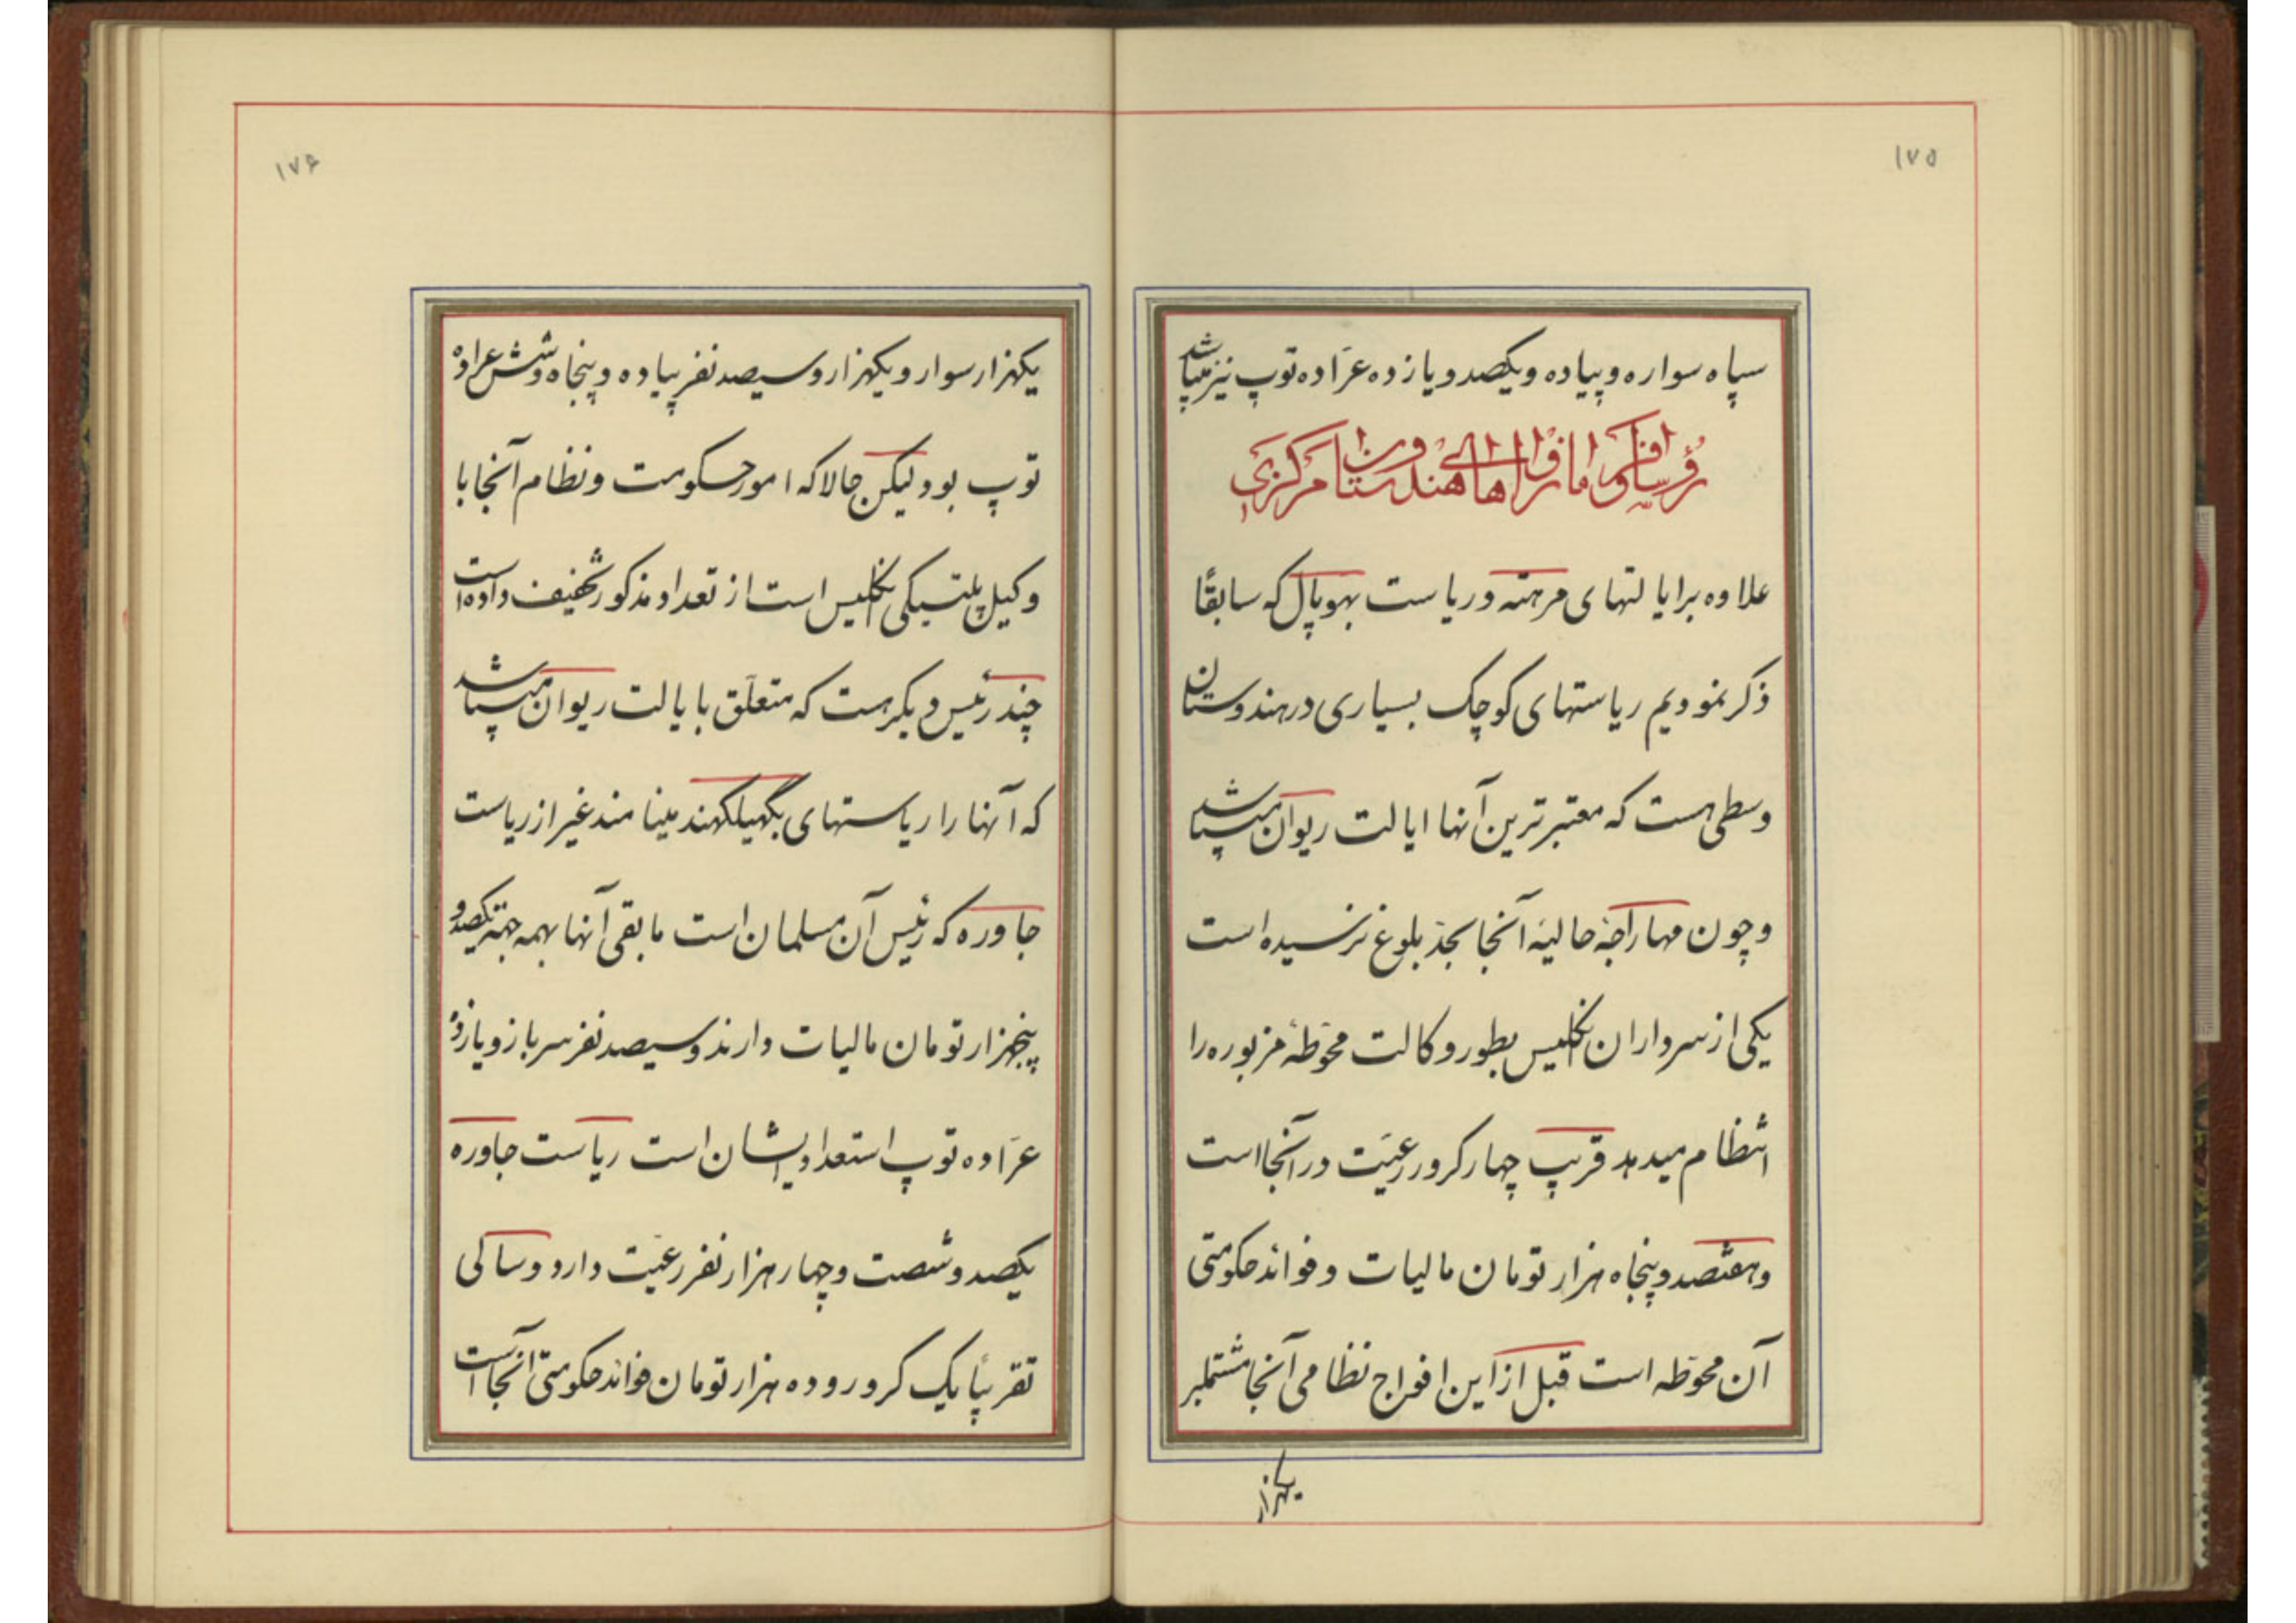 ۱۷۵
سپاه سواره و پیاده و یکصد و یازده عرّاده توپ نیز میباشد
علاوه بر ایالتهای مرهته و ریاست بهوپال که سابقًا
ذکر نمودیم ریاستهای کوچک بسیاری در هندوستان
وسطی هست که معتبرترین آنها ایالت ریوان میباشد
و چون مهاراجهٔ حالیهٔ آنجا بحدّ بلوغ نرسیده است
یکی از سرداران انگلیس بطور وکالت محوّطهٔ مزبوره را
انتظام میدهد قریب چهار کرور رعیّت در آنجا است
و هفتصد و پنجاه هزار تومان مالیات و فوائد حکومتی
آن محوّطه است قبل از این افواج نظامی آنجا مشتمل بر
یکهزار
۱۷۶
یکهزار سوار و یکهزار و سیصد نفر پیاده و پنجاه و شش عراده
توپ بود و لیکن حالا که امور حکومت و نظام آنجا با
وکیل پلتیکی انگلیس است از تعداد مذکور تخفیف داده است
چند رئیس دیگر هست که متعلّق بایالت ریوان میباشد
که آنها را ریاستهای بگهیلکهند مینامند غیر از ریاست
جاوره که رئیس آن مسلمان است مابقی آنها همه یکصد و
پنجهزار تومان مالیات دارند و سیصد نفر سرباز و یازده
عرّاده توپ استعداد ایشان است ریاست جاوره
یکصد و شصت و چهار هزار نفر رعیّت دارد و سالی
تقریبًا یک کرور و ده هزار تومان فوائد حکومتی آنجا است